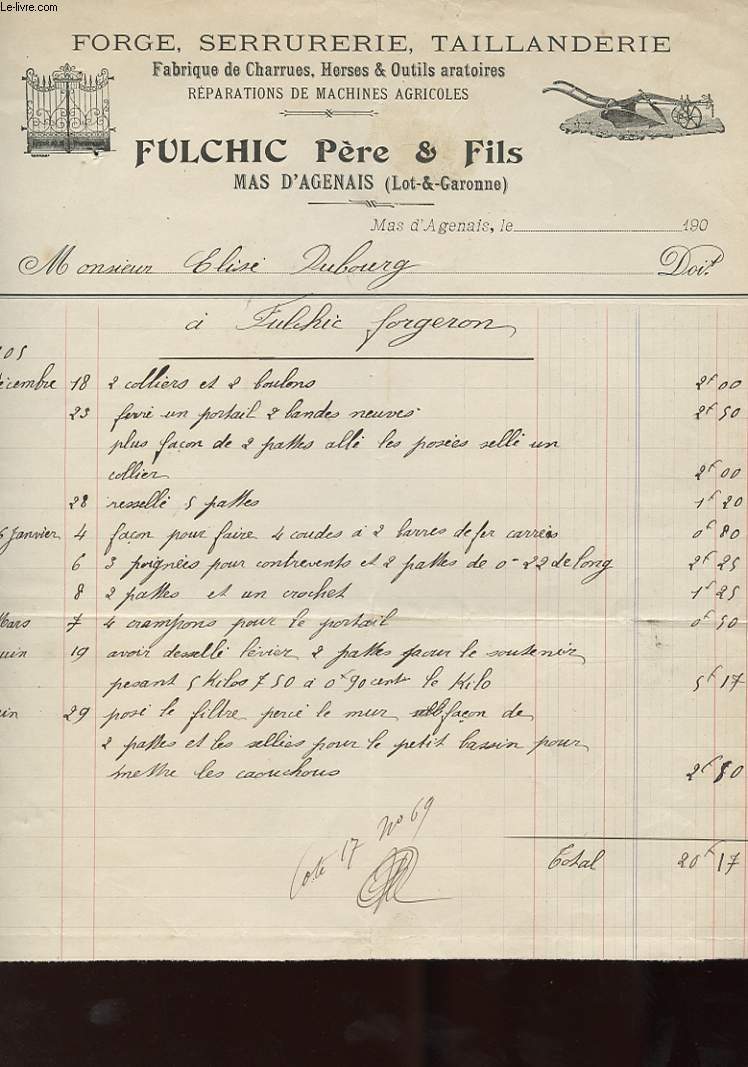 Le-livre.com
FORGE, SERRURERIE, TAILLANDERIE
Fabrique de Charrues, Herses & Outils aratoires
RÉPARATIONS DE MACHINES AGRICOLES
FULCHIC Père & Fils
MAS D'AGENAIS (Lot-&-Garonne)
Mas d'Agenais, le 190
Monsieur Elisé Dubourg Doit
à Fulchic forgeron
05
écembre 18 2 colliers et 2 boulons 2f 00
23 ferré un portail 2 bandes neuves 2f 50
plus façon de 2 pattes allé les posées sellé un
collier 2f 00
28 ressellé 5 pattes 1f 20
6 Janvier 4 façon pour faire 4 coudes à 2 barres de fer carrées 0f 80
6 3 poignées pour contrevents et 2 pattes de 0m 22 de long 2f 25
8 2 pattes et un crochet 1f 25
Mars 7 4 crampons pour le portail 0f 50
uin 19 avoir dessellé lévier 2 pattes pour le soutenir
pesant 5 Kilos 750 à 0f 90 cent le Kilo 5f 17
in 29 posé le filtre percé le mur façon de
2 pattes et les sellées pour le petit bassin pour
mettre les caouchous 2f 50
Cote 17 No 69
Total 20f 17